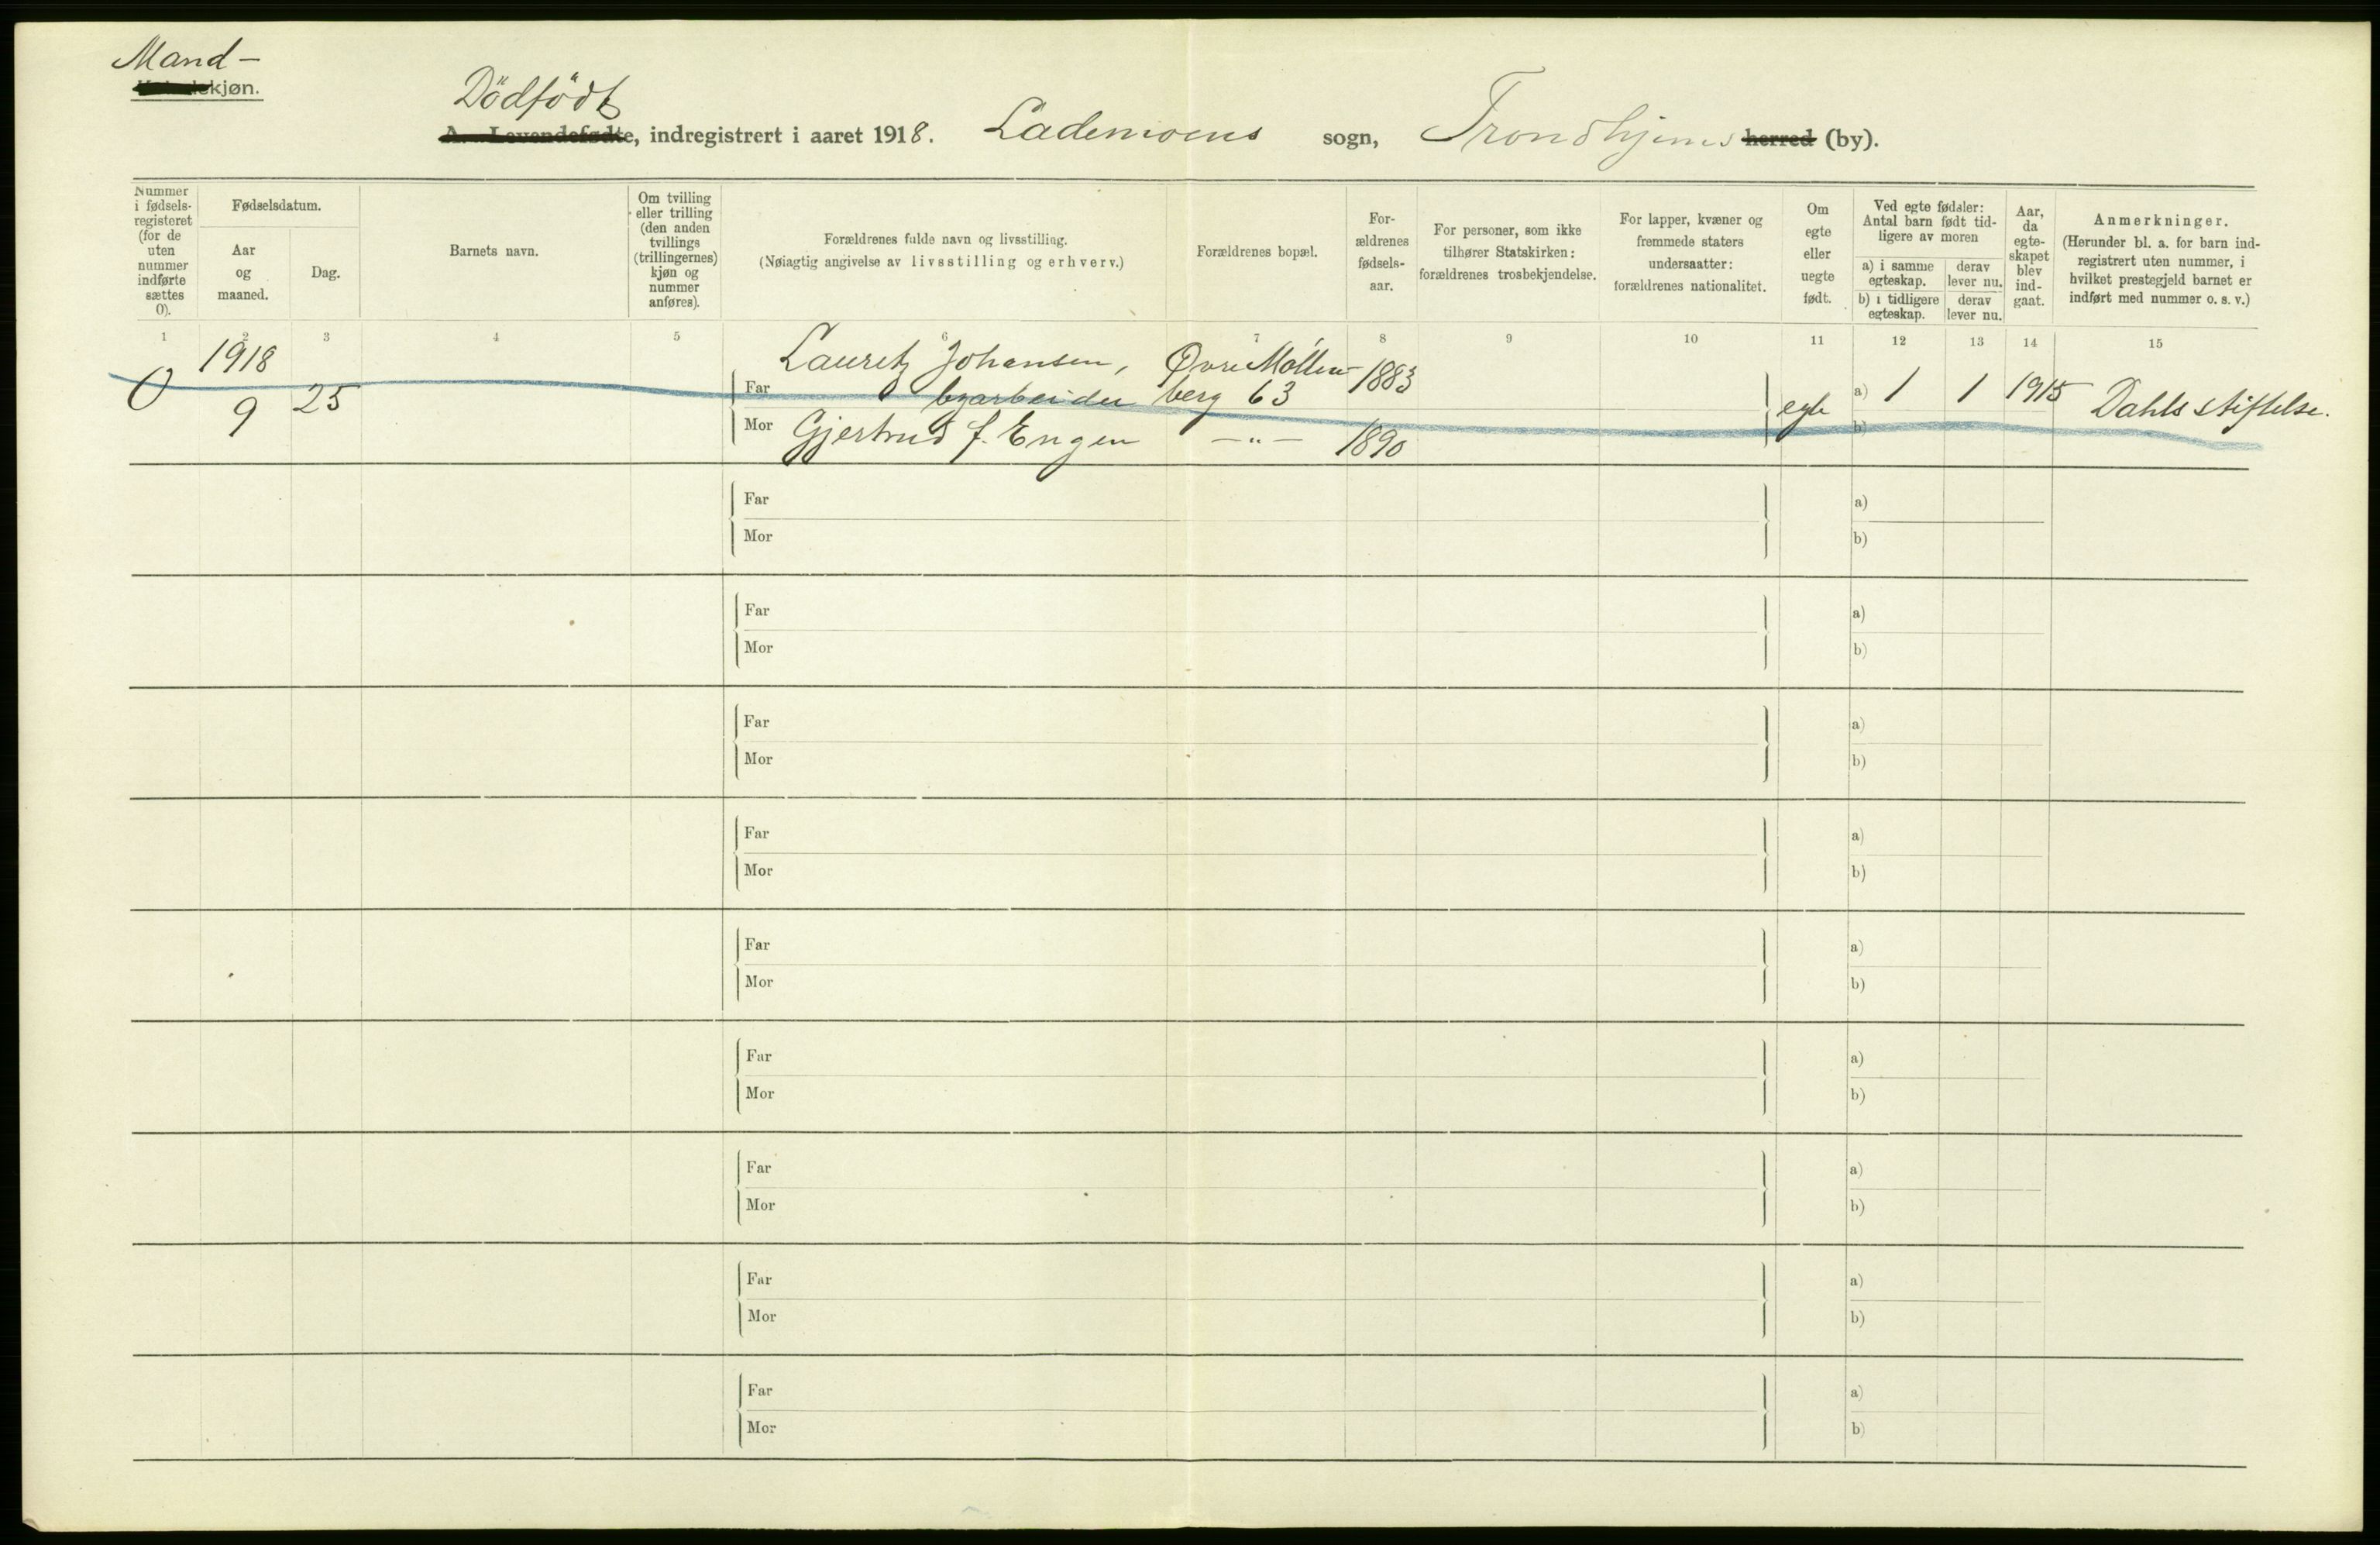 Mand-
kjøn.
Dödfödt
A. Levendefødte, indregistrert i aaret 1918. Lademoens sogn, Trondhjems herred (by).
Nummer i fødsels-registeret (for de uten nummer indførte sættes 0).
Fødselsdatum.
Aar og maaned.
Dag.
Barnets navn.
Om tvilling eller trilling (den anden tvillings (trillingernes) kjøn og nummer anføres).
Forældrenes fulde navn og livsstilling.
(Nøiagtig angivelse av livsstilling og erhverv.)
Forældrenes bopæl.
For-ældrenes fødsels-aar.
For personer, som ikke tilhører Statskirken: forældrenes trosbekjendelse.
For lapper, kvæner og fremmede staters undersaatter: forældrenes nationalitet.
Om egte eller uegte født.
Ved egte fødsler: Antal barn født tid-ligere av moren
a) i samme egteskap.
derav lever nu.
b) i tidligere egteskap.
derav lever nu.
Aar, da egte-skapet blev ind-gaat.
Anmerkninger.
(Herunder bl. a. for barn ind-registrert uten nummer, i hvilket prestegjeld barnet er indført med nummer o. s. v.)
1 2 3 4 5 6 7 8 9 10 11 12 13 14 15
1918 Lauretz Johansen, Øvre Möllen- 1883
0 9 25 Far byarbeider berg 63 egte a) 1 1 1915 Dahls stiftelse.
Mor Gjertrud f. Engen -"- 1890 b)
Far a)
Mor b)
Far a)
Mor b)
Far a)
Mor b)
Far a)
Mor b)
Far a)
Mor b)
Far a)
Mor b)
Far a)
Mor b)
Far a)
Mor b)
Far a)
Mor b)